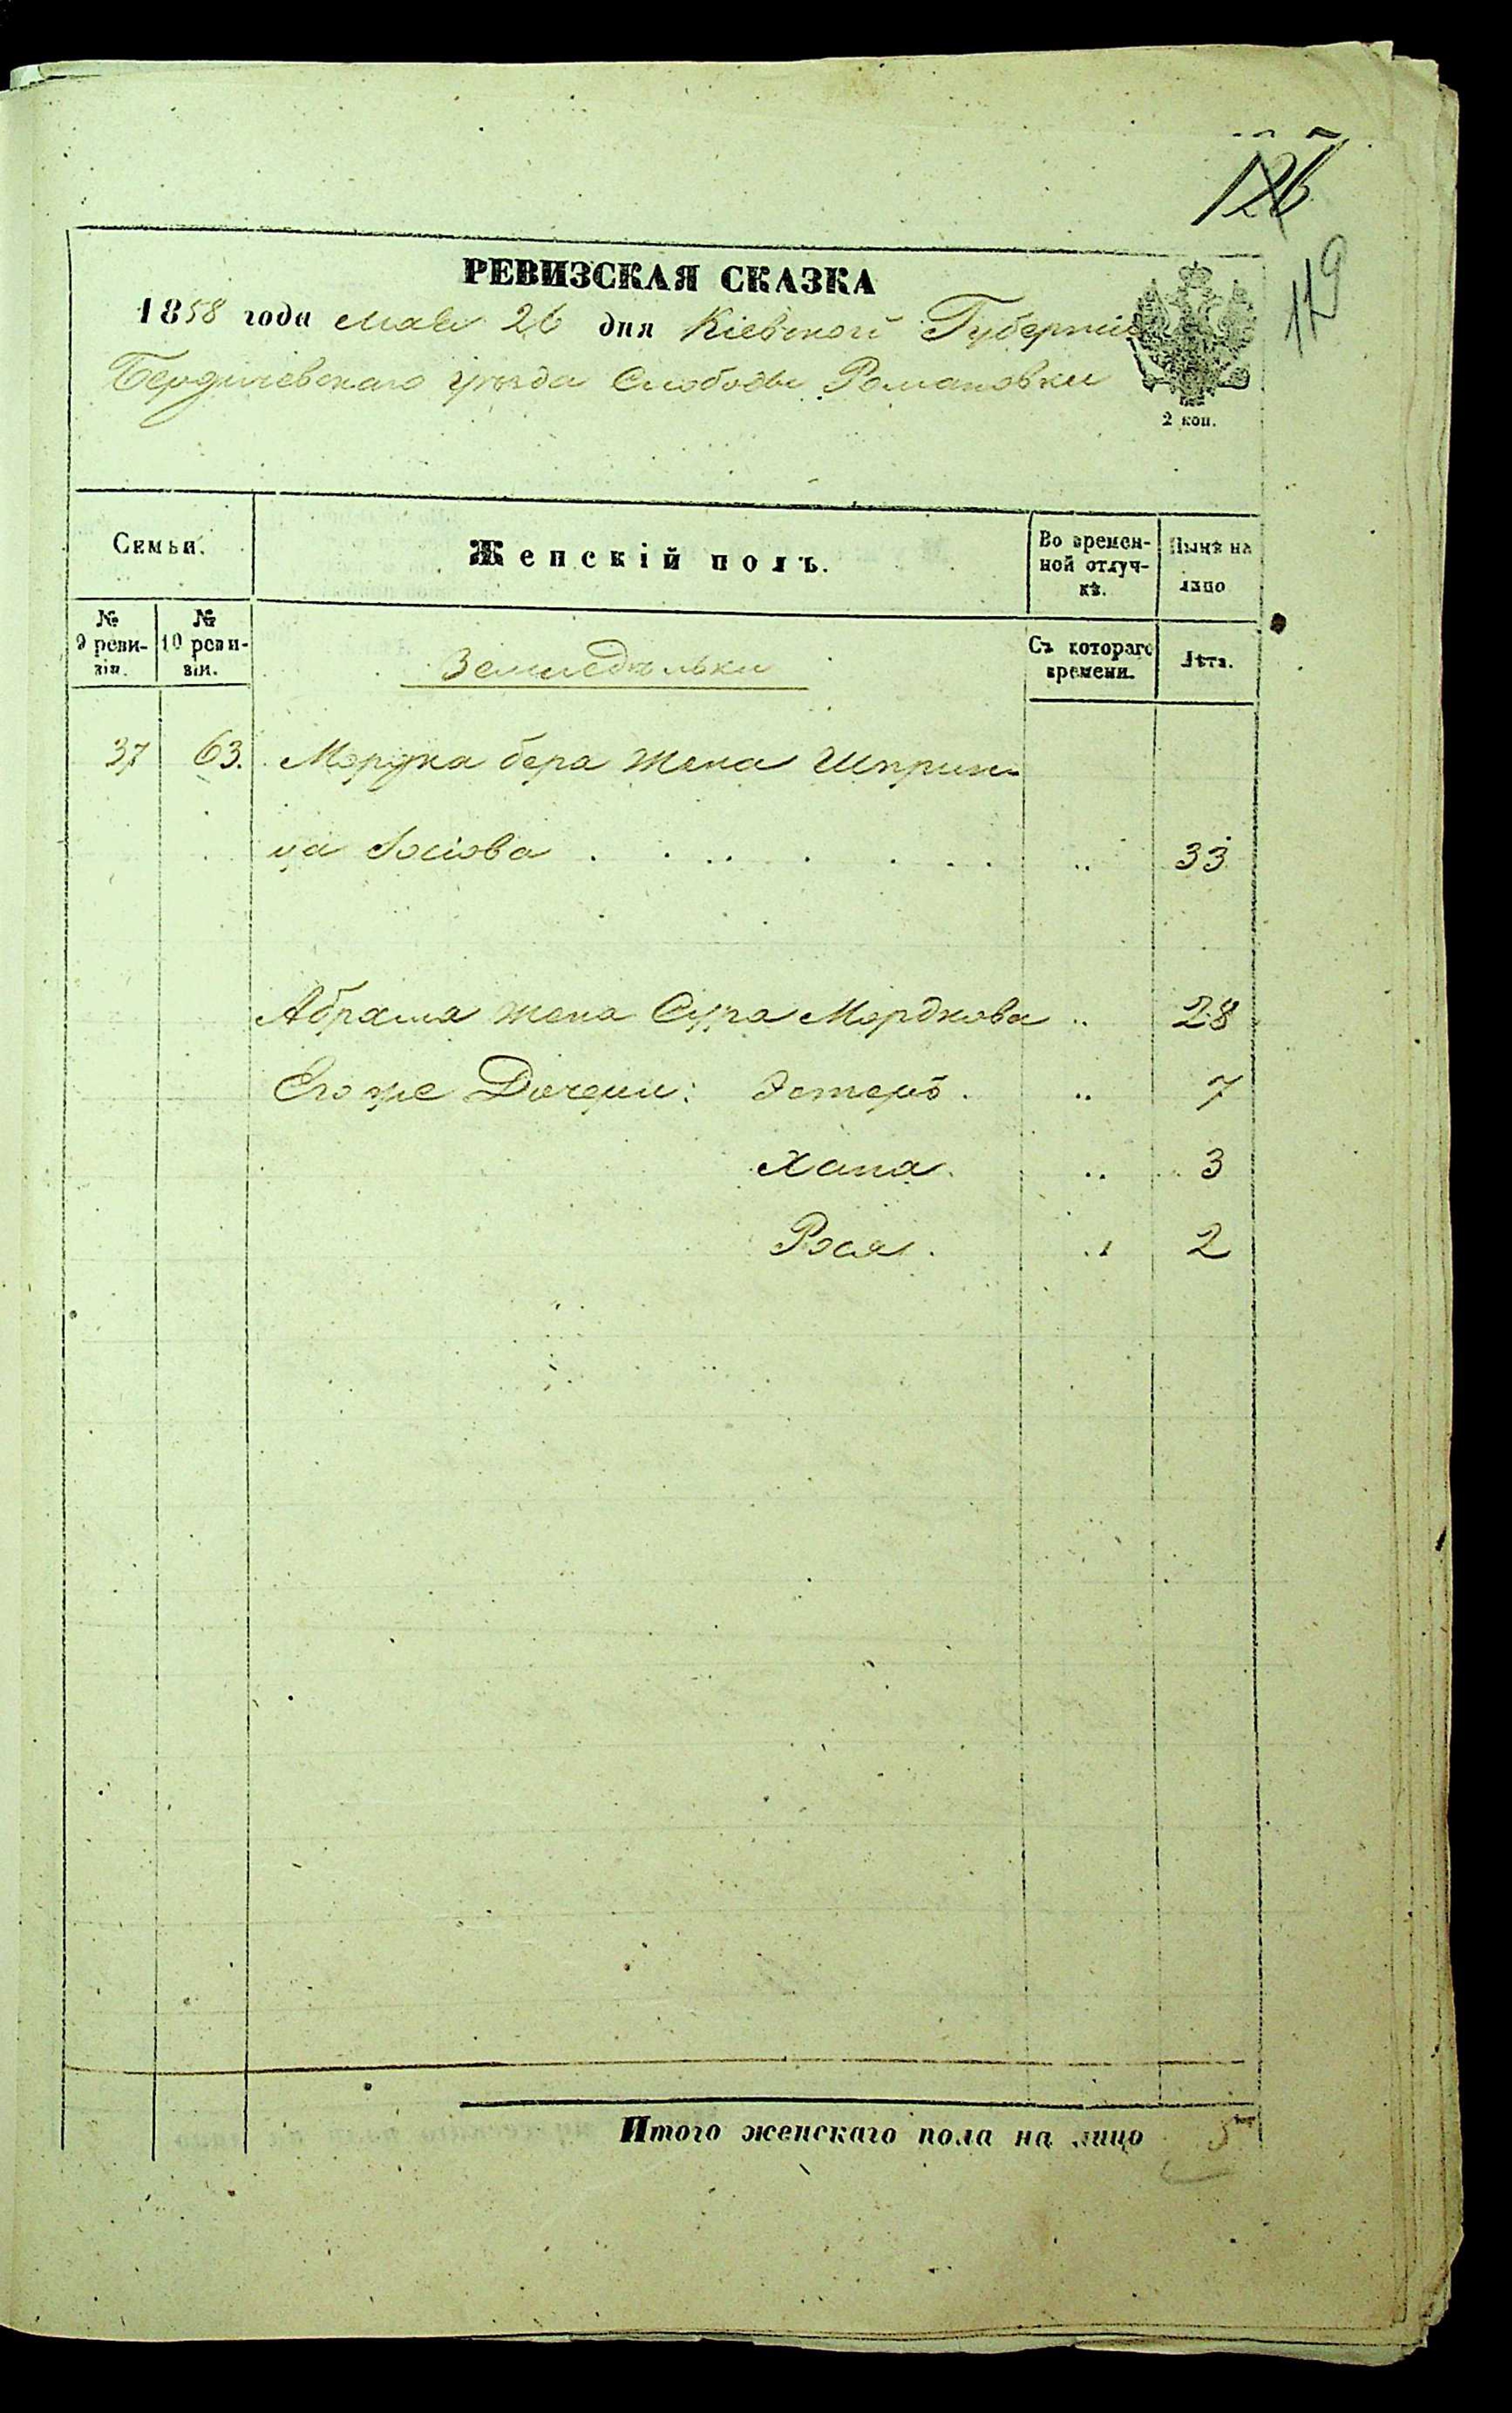 126
119
РЕВИЗСКАЯ СКАЗКА
1858 года Мая 26 дня Кіевской Губерніи
Бердичевскаго уѣзда Слободы Романовки
2 коп.
Семьи.
Женскій полъ.
Во времен-
ной отлуч-
кѣ.
Нынѣ на
лицо
№
9 реви-
зіи.
№
10 реви-
зіи.
Съ котораго
времени.
Лѣта.
Земледѣльки
37 63. Мордка бера жена Шприн-
ца Іосіова . . . . . . . . .. 33
Абрама жена Сура Мордкова .. 28
Его же Дочери: Эстеръ . .. 7
Хана . .. 3
Рося . .. 2
Итого женскаго пола на лицо 5